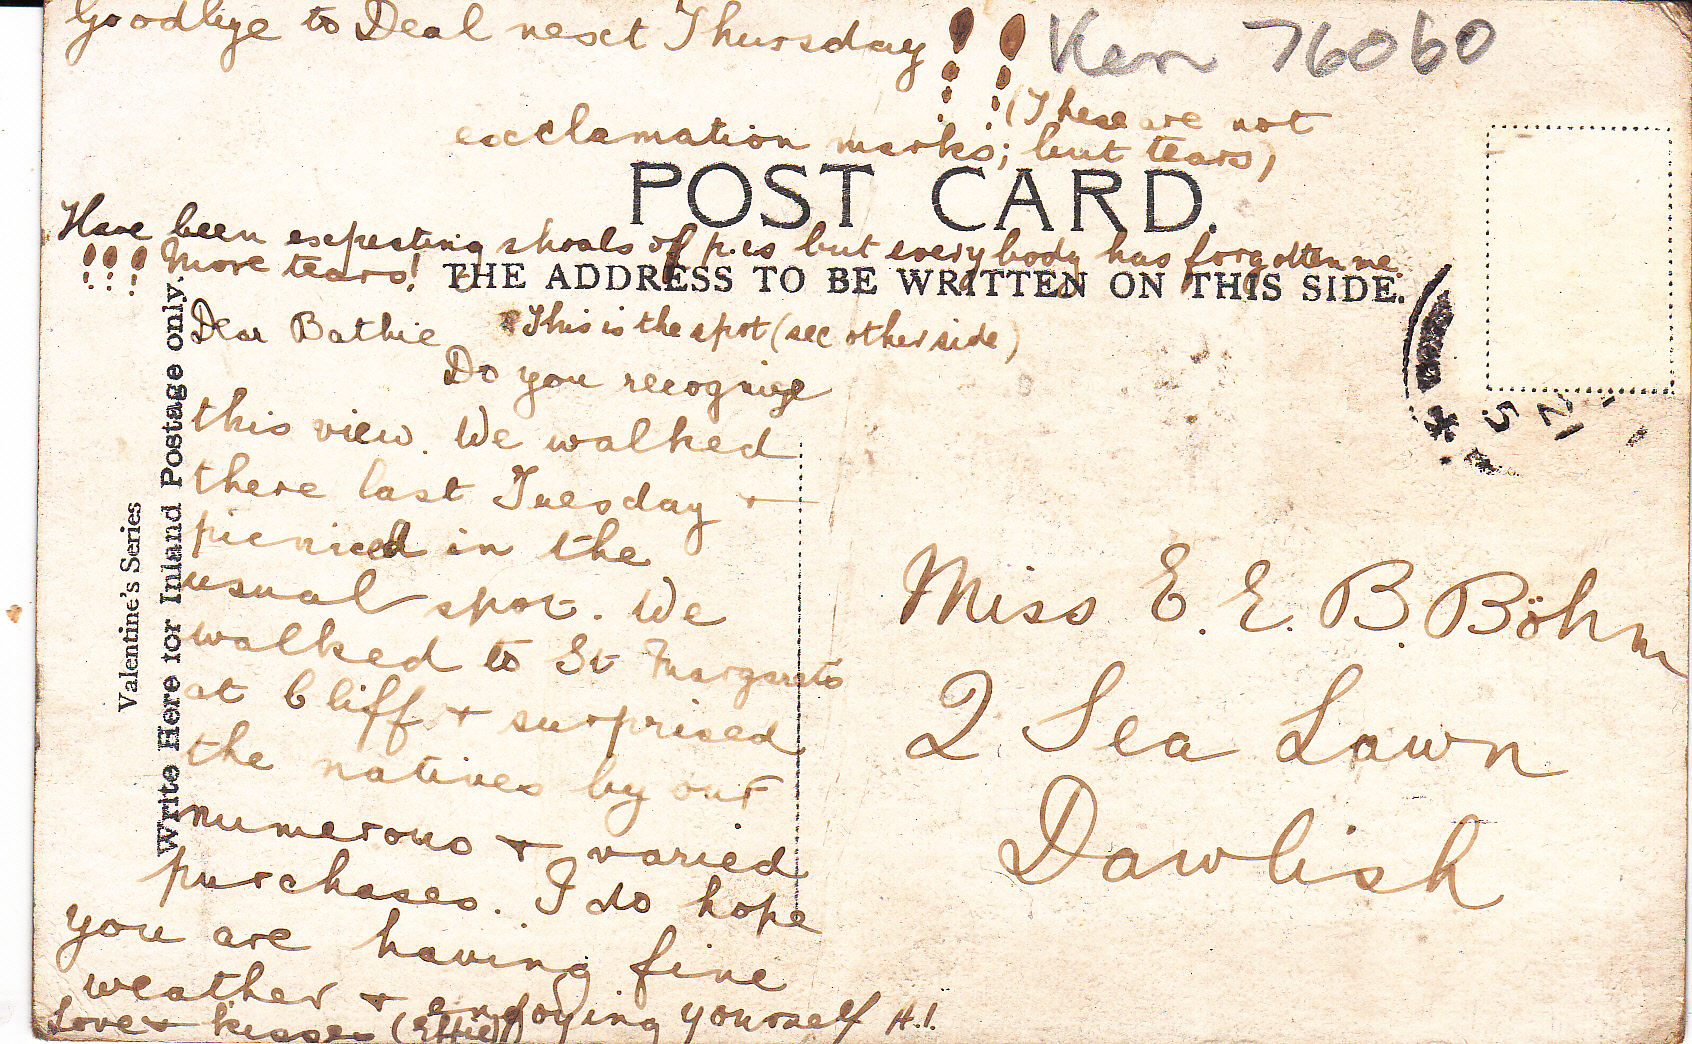 Goodbye to Deal next Thursday !!
Ken 76060
(These are not
exclamation marks; but tears)
POST CARD.
Have been expecting shoals of p.cs but everybody has forgotten me.
!!! More tears!
THE ADDRESS TO BE WRITTEN ON THIS SIDE.
Valentine's Series
Write Here for Inland Postage only.
Dear Bathie
This is the spot (see other side)
Do you recognize
this view. We walked
there last Tuesday +
picniced in the
usual spot. We
walked to St Margarets
at Cliff + surprised
the natives by our
numerous + varied
purchases. I do hope
you are having fine
weather + enjoying yourself
Love + kisses (Effie)
Miss E. E. B. Böhm
2 Sea Lawn
Dawlish